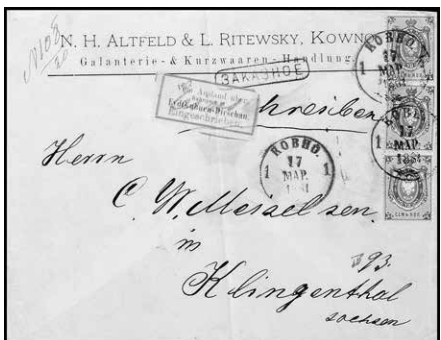 N. H. ALTFELD & L. RITEWSKY, KOWNO
Galanterie- & Kurzwaaren-Handlung.
ЗАКАЗНОЕ
Ausland über
Eydtkuhnen-Dirschau.
Eingeschrieben.
КОВНО.
1 17 1
МАР.
1881
КОВНО.
1 17 1
МАР.
1881
КОВНО.
17
МАР.
1881
Herrn
C. W. Meisel sen.
in
Klingenthal
Sachsen